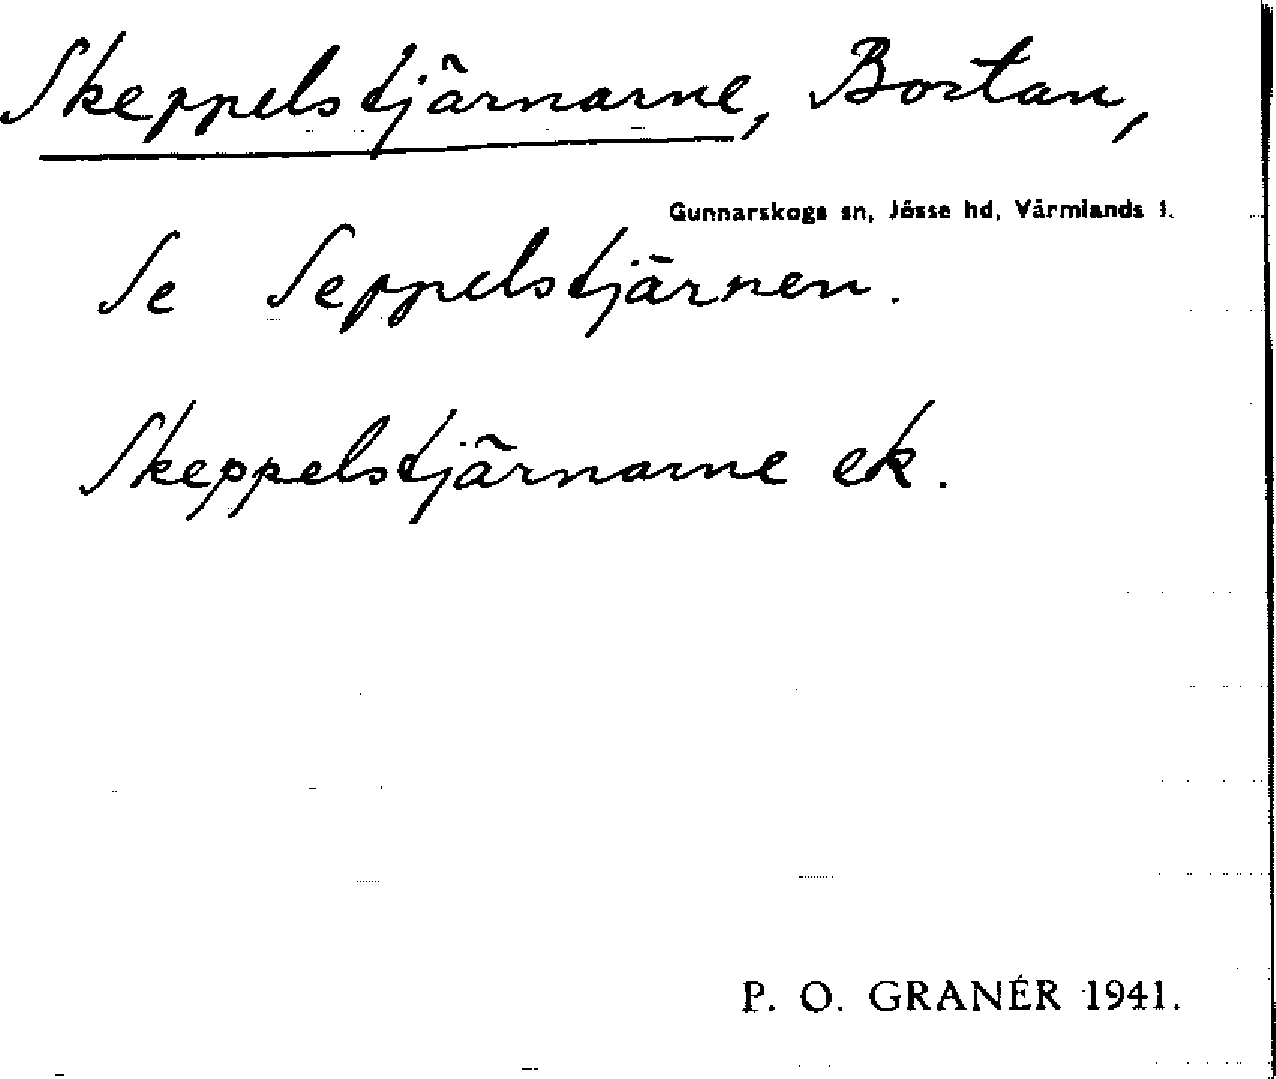 Skeppelstjärnarne, Bortan,
Gunnarskogs sn, Jösse hd, Värmlands l.
Se Seppelstjärnen.
Skeppelstjärnarne ek.
P. O. GRANÉR 1941.